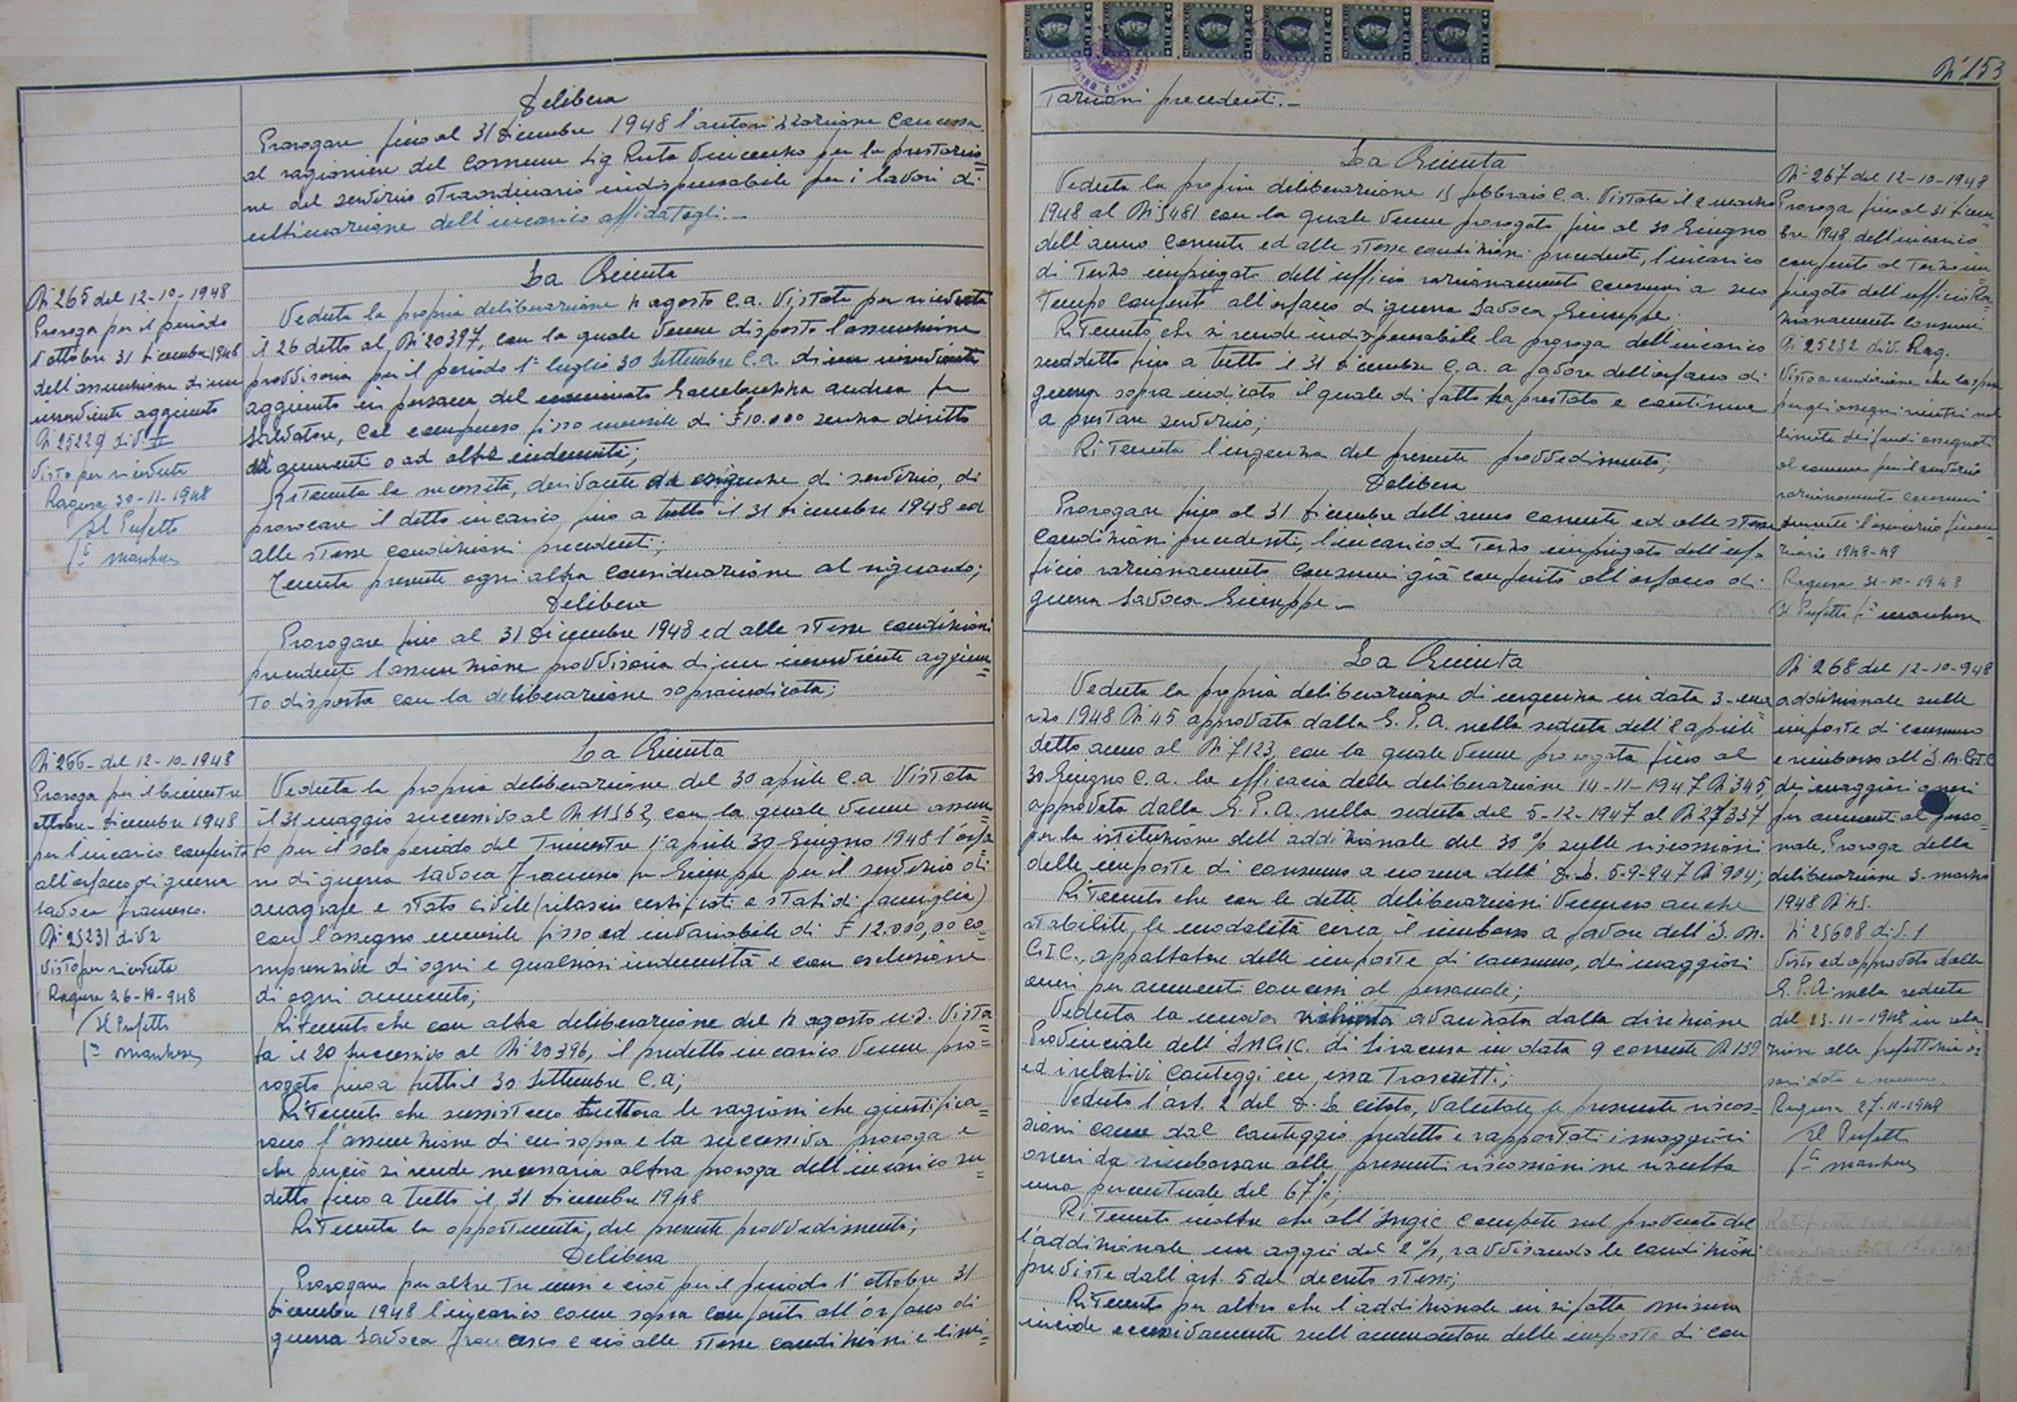 Delibera
Prorogare fino al 31 Dicembre 1948 l'autorizzazione concessa
al ragioniere del Comune Sig Vincenzo per la prestazio=
ne del servizio straordinario indispensabile per i lavori di
ultimazione dell'incarico affidatogli._
N° 265 del 12-10-1948
Proroga per il periodo
1 ottobre 31 Dicembre 1948
dell'assunzione di un
inserviente aggiunto
N 25229 div II
Visto per ricevuta
Ragusa 30-11-1948
Il Prefetto
La Giunta
Veduta la propria deliberazione 12 agosto c.a. Vistata per ricevuta
il 26 detto al N° 20397, con la quale venne disposta l'assunzione
provvisoria per il periodo 1° luglio 30 Settembre c.a. di un inserviente
aggiunto in persona del nominato andrea fu
Salvatore, col compenso fisso mensile di £ 10.000 senza diritto
ad aumenti o ad altre indennità;
Ritenuta la necessità, derivante da esigenze di servizio, di
prorogare il detto incarico, fino a tutto il 31 Dicembre 1948 ed
alle stesse condizioni precedenti;
Tenuta presente ogni altra considerazione al riguardo;
Delibera
Prorogare fino al 31 Dicembre 1948 ed alle stesse condizioni
precedenti l'assunzione provvisoria di un inserviente aggiun=
to disposta con la deliberazione sopraindicata;
N° 266- del 12-10-1948
Proroga per il trimestre
ottobre- Dicembre 1948
per l'incarico conferito
all'orfano di guerra
Savoca Francesco.
N° 25231 div 2
Visto per ricevuta
Ragusa 26-10-948
Il Prefetto
La Giunta
Veduta la propria deliberazione del 30 aprile c.a. Vistata
il 31 maggio successivo al N 11562, con la quale venne assun=
to per il solo periodo del Trimestre 1° aprile 30 Giugno 1948 l'orfa
no di guerra Savoca Francesco fu Giuseppe per il servizio di
anagrafe e stato civile (rilascio certificati e stati di famiglia)
con l'assegno mensile fisso ed invariabile di £ 12.000,00 co=
mprensive di ogni e qualsiasi indennità e con esclusione
di ogni aumento;
Ritenuto che con altra deliberazione del 12 agosto u.s. Vista=
ta il 20 successivo al N° 20396, il predetto incarico venne pro=
rogato fino a tutto il 30 Settembre c.a;
Ritenuto che sussistono tuttora le ragioni che giustifica=
rono l'assunzione di cui sopra e la successiva proroga e
che perciò si rende necessaria altra proroga dell'incarico su=
detto fino a tutto il 31 Dicembre 1948
Ritenuta la opportunità, del presente provvedimento;
Delibera
Prorogare per altre tre mesi e cioè per il periodo 1° ottobre 31
Dicembre 1948 l'incarico come sopra conferito all'orfano di
guerra Savoca Francesco e ciò alle stesse condizioni e limi=
N° 153
Tazioni precedenti._
La Giunta
Veduta la propria deliberazione 15 febbraio c.a. Vistata il 2 marzo
1948 al N° 5481 con la quale venne prorogato fino al 30 Giugno
dell'anno corrente ed alle stesse condizioni precedenti, l'incarico
di Terzo impiegato dell'ufficio razionamento consumi a suo
Tempo conferito all'orfano di guerra Savoca Giuseppe.
Ritenuto, che si rende indispensabile la proroga dell'incarico
suddetto fino a tutto il 31 Dicembre c.a. a favore dell'orfano di
guerra sopra indicato il quale di fatto ha prestato e continua
a prestare servizio;
Ritenuta l'urgenza del presente provvedimento;
Delibera
Prorogare fino al 31 Dicembre dell'anno corrente ed alle stesse
condizioni precedenti, l'incarico di Terzo impiegato dell'uf=
ficio razionamento consumi già conferito all'orfano di
guerra Savoca Giuseppe._
N° 267 del 12-10-1948
Proroga fino al 31 Dicem
bre 1948 dell'incarico
conferito al Terzo im
piegato dell'ufficio Ra
zionamento Consumi
N 25232 div. Rag.
Visto a condizione che la spesa
per gli assegni rientri nel
limite dei fondi assegnati
al comune per il servizio
razionamento consumi
durante l'esercizio finan
ziario 1948-49
Ragusa 31-10-1948
Il Prefetto
La Giunta
Veduta la propria deliberazione di urgenza in data 3-mar
zo 1948 N° 45 approvata dalla G.P.A. nella seduta dell'8 aprile
detto anno al N° 7123, con la quale venne prorogata fino al
30 Giugno c.a. la efficacia delle deliberazione 14-11-1947 N 345,
approvata dalla G.P.A. nella seduta del 5-12-1947 al N° 27337
per la istituzione dell'addizionale del 30% sulle riscossioni
delle imposte di consumo a norma dell' D.L. 5-9-947 N 904;
Ritenuto che con le dette deliberazioni vennero anche
stabilite, le modalità circa il rimborso a favore dell'I.N.
G.I.C., appaltatore delle imposte di consumo, dei maggiori
oneri per aumenti concessi al personale;
Veduta la nuova richiesta avanzata dalla direzione
Provinciale dell'INGIC. di Siracusa in data 9 corrente N 139
ed i relativi conteggi in essa Trascritti;
Veduto l'art. 2 del D. L. citato, valutate le presunte riscos=
sioni come dal conteggio predetto e rapportati i maggiori
oneri da rimborsare alle presunti riscossioni ne risulta
una percentuale del 67%;
Ritenuto inoltre che all'Ingic compete sul provento del
l'addizionale un aggio del 2%, ravvisando le condizioni
previste dall'art. 5 del decreto stesso;
Ritenuto per altro che l'addizionale in siffatta misura
incide eccessivamente sull'ammontare delle imposte di con
N° 268 del 12-10-948
addizionale sulle
imposte di consumo
e rimborso all'I.N.G.I.C.
dei maggiori oneri
per aumenti al perso=
nale. Proroga della
deliberazione 3-marzo
1948 N° 45.
N° 25608 div. 1
Visto ed approvato dalla
G.P.A. nella seduta
del 23-11-1948 in rela
zione alla
Ragusa 27-11-1948
Il Prefetto